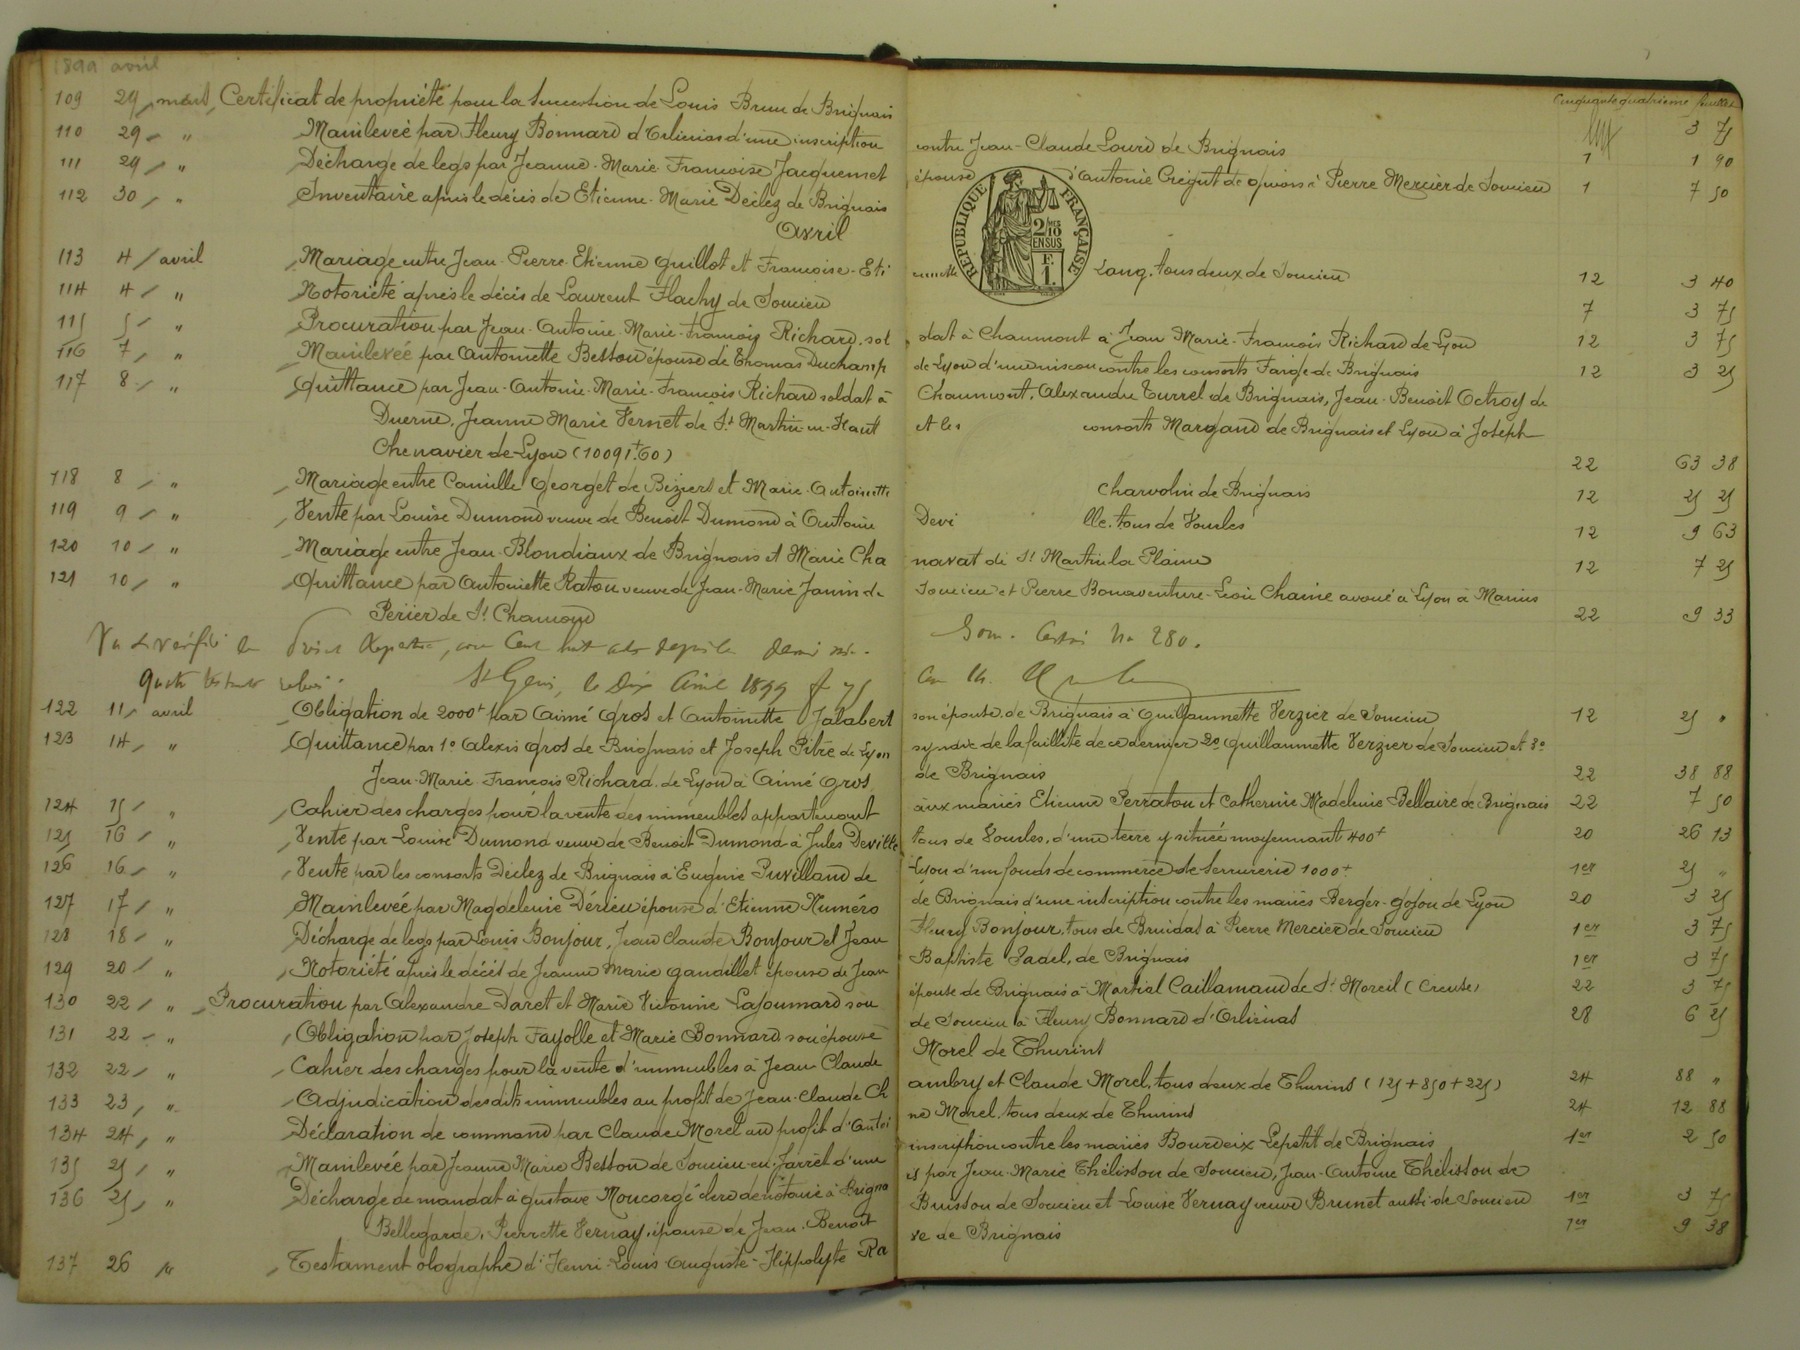 1899 avril
Cinquante quatrième feuillet
109 29 mars Certificat de propriété pour la succession de Louis Brun de Brignais 3 75
110 29 " Mainlevée par Fleury Bonnard d'Orliénas d'une inscription contre Jean-Claude Louis de Brignais 1 1 90
111 29 " Décharge de legs par Jeanne-Marie-Françoise Jacquemet épouse d'Antoine Crégut de à Pierre Mercier de Soucieu 1 7 50
112 30 " Inventaire après le décès de Etienne-Marie Déclez de Brignais
REPUBLIQUE FRANÇAISE
2/10 EN SUS
1 F.
Avril
113 4 avril Mariage entre Jean-Pierre-Etienne Guillot et Françoise-Eti ennette Lang, tous deux de Soucieu 12 3 40
114 4 " Notoriété après le décès de Laurent Flachy de Soucieu 7 3 75
115 5 " Procuration par Jean-Antoine-Marie-François Richard, sol dat à Chaumont à Jean Marie-François Richard de Lyon 12 3 75
116 7 " Mainlevée par Antoinette Besson épouse de Thomas Duchamp de Lyon d'une inscon contre les consorts Farge de Brignais 12 3 25
117 8 " Quittance par Jean-Antoine-Marie-François Richard soldat à Chaumont, Alexandre Turrel de Brignais, Jean-Benoit Octroy de
Duerne, Jeanne Marie Vernet de St Martin-en-Haut et les consorts Margand de Brignais et Lyon à Joseph
Chenavier de Lyon (10091f.60) 22 63 38
118 8 " Mariage entre Camille Georget de Béziers et Marie-Antoinette Charvolin de Brignais 12 25 25
119 9 " Vente par Louise Dumond veuve de Benoit Dumond à Antoine Devi lle, tous de Vourles 12 9 63
120 10 " Mariage entre Jean-Blondiaux de Brignais et Marie Cha navat de St Martin la Plaine 12 7 25
121 10 " Quittance par Antoinette Raton veuve de Jean-Marie Janin de Soucieu et Pierre Bonaventure-Léon Chaine avoué à Lyon à Marius
Perier de St Chamond 22 9 33
Vu et vérifié le
St Genis, le Dix Avril 1899 280.
122 11 avril Obligation de 2000f par Aimé Gros et Antoinette Jalabert son épouse, de Brignais à Guillaumette Verzier de Soucieu 12 25 "
123 14 " Quittance par 1º Alexis Gros de Brignais et Joseph Pitre de Lyon syndic de la faillite de ce dernier 2º Guillaumette Verzier de Soucieu et 3º
Jean-Marie-François Richard, de Lyon à Aimé Gros de Brignais 22 38 88
124 15 " Cahier des charges pour la vente des immeubles appartenant aux mariés Etienne Perraton et Catherine Madeleine Bellaire de Brignais 22 7 50
125 16 " Vente par Louise Dumond veuve de Benoit Dumond à Jules Deville tous de Vourles, d'une terre y située moyennant 400f 20 26 13
126 16 " Vente par les consorts Déclez de Brignais à Eugène Puvilland de Lyon d'un fonds de commerce de serrurerie 1000f 1er 25 "
127 17 " Mainlevée par Magdeleine Dérieu épouse d'Etienne Numéro de Brignais d'une inscription contre les mariés Berger-Gojou de Lyon 20 3 25
128 18 " Décharge de legs par Louis Bonjour, Jean Claude Bonjour et Jean Fleury Bonjour, tous de Brindas à Pierre Mercier de Soucieu 1er 3 75
129 20 " Notoriété après le décès de Jeanne Marie Gandillet épouse de Jean Baptiste Sadel, de Brignais 1er 3 75
130 22 " Procuration par Alexandre Daret et Marie Victorine Lajoumard son épouse de Brignais à Martial Caillamaud de St Moreil (Creuse) 22 3 75
131 22 " Obligation par Joseph Fayolle et Marie Bonnard son épouse de Soucieu à Fleury Bonnard d'Orliénas 28 6 25
132 22 " Cahier des charges pour la vente d'immeubles à Jean Claude Morel de Thurins
133 23 " Adjudication desdits immeubles au profit de Jean-Claude Ch ambry et Claude Morel, tous deux de Thurins (125+850+225) 24 88 "
134 24 " Déclaration de command par Claude Morel au profit d'Antoi ne Morel, tous deux de Thurins 24 12 88
135 25 " Mainlevée par Jeanne Marie Besson de Soucieu-en-Jarrêt d'une inscription contre les mariés Bourdeix Lepetit de Brignais 1er 2 50
136 25 " Décharge de mandat à Gustave Moncorgé clerc de notaire à Brigna is par Jean-Marie Thélisson de Soucieu, Jean-Antoine Thélisson de
Bellegarde, Pierrette Vernay, épouse de Jean-Benoit Buisson de Soucieu et Louise Vernay veuve Brunet aussi de Soucieu 1er 3 75
137 26 " Testament olographe d'Henri-Louis-Auguste-Hippolyte Ra ve de Brignais 1er 9 38